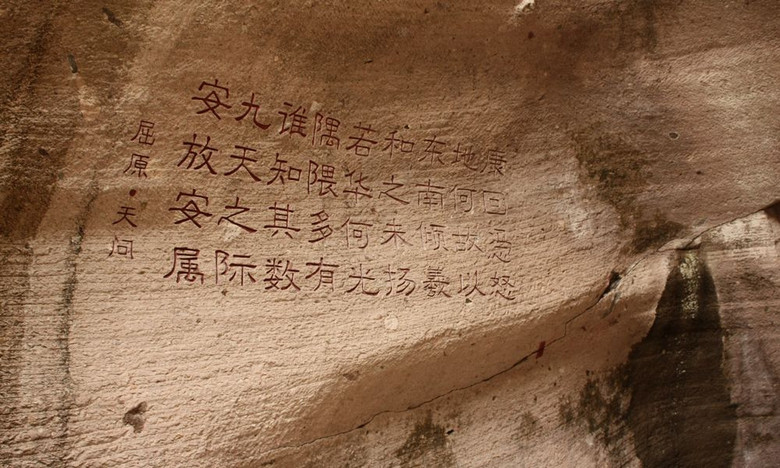 康回怒
地何故以
东南倾羲
和之未扬
若华何光
隅隈多有
谁知其数
九天之际
安放安属
屈原·天问